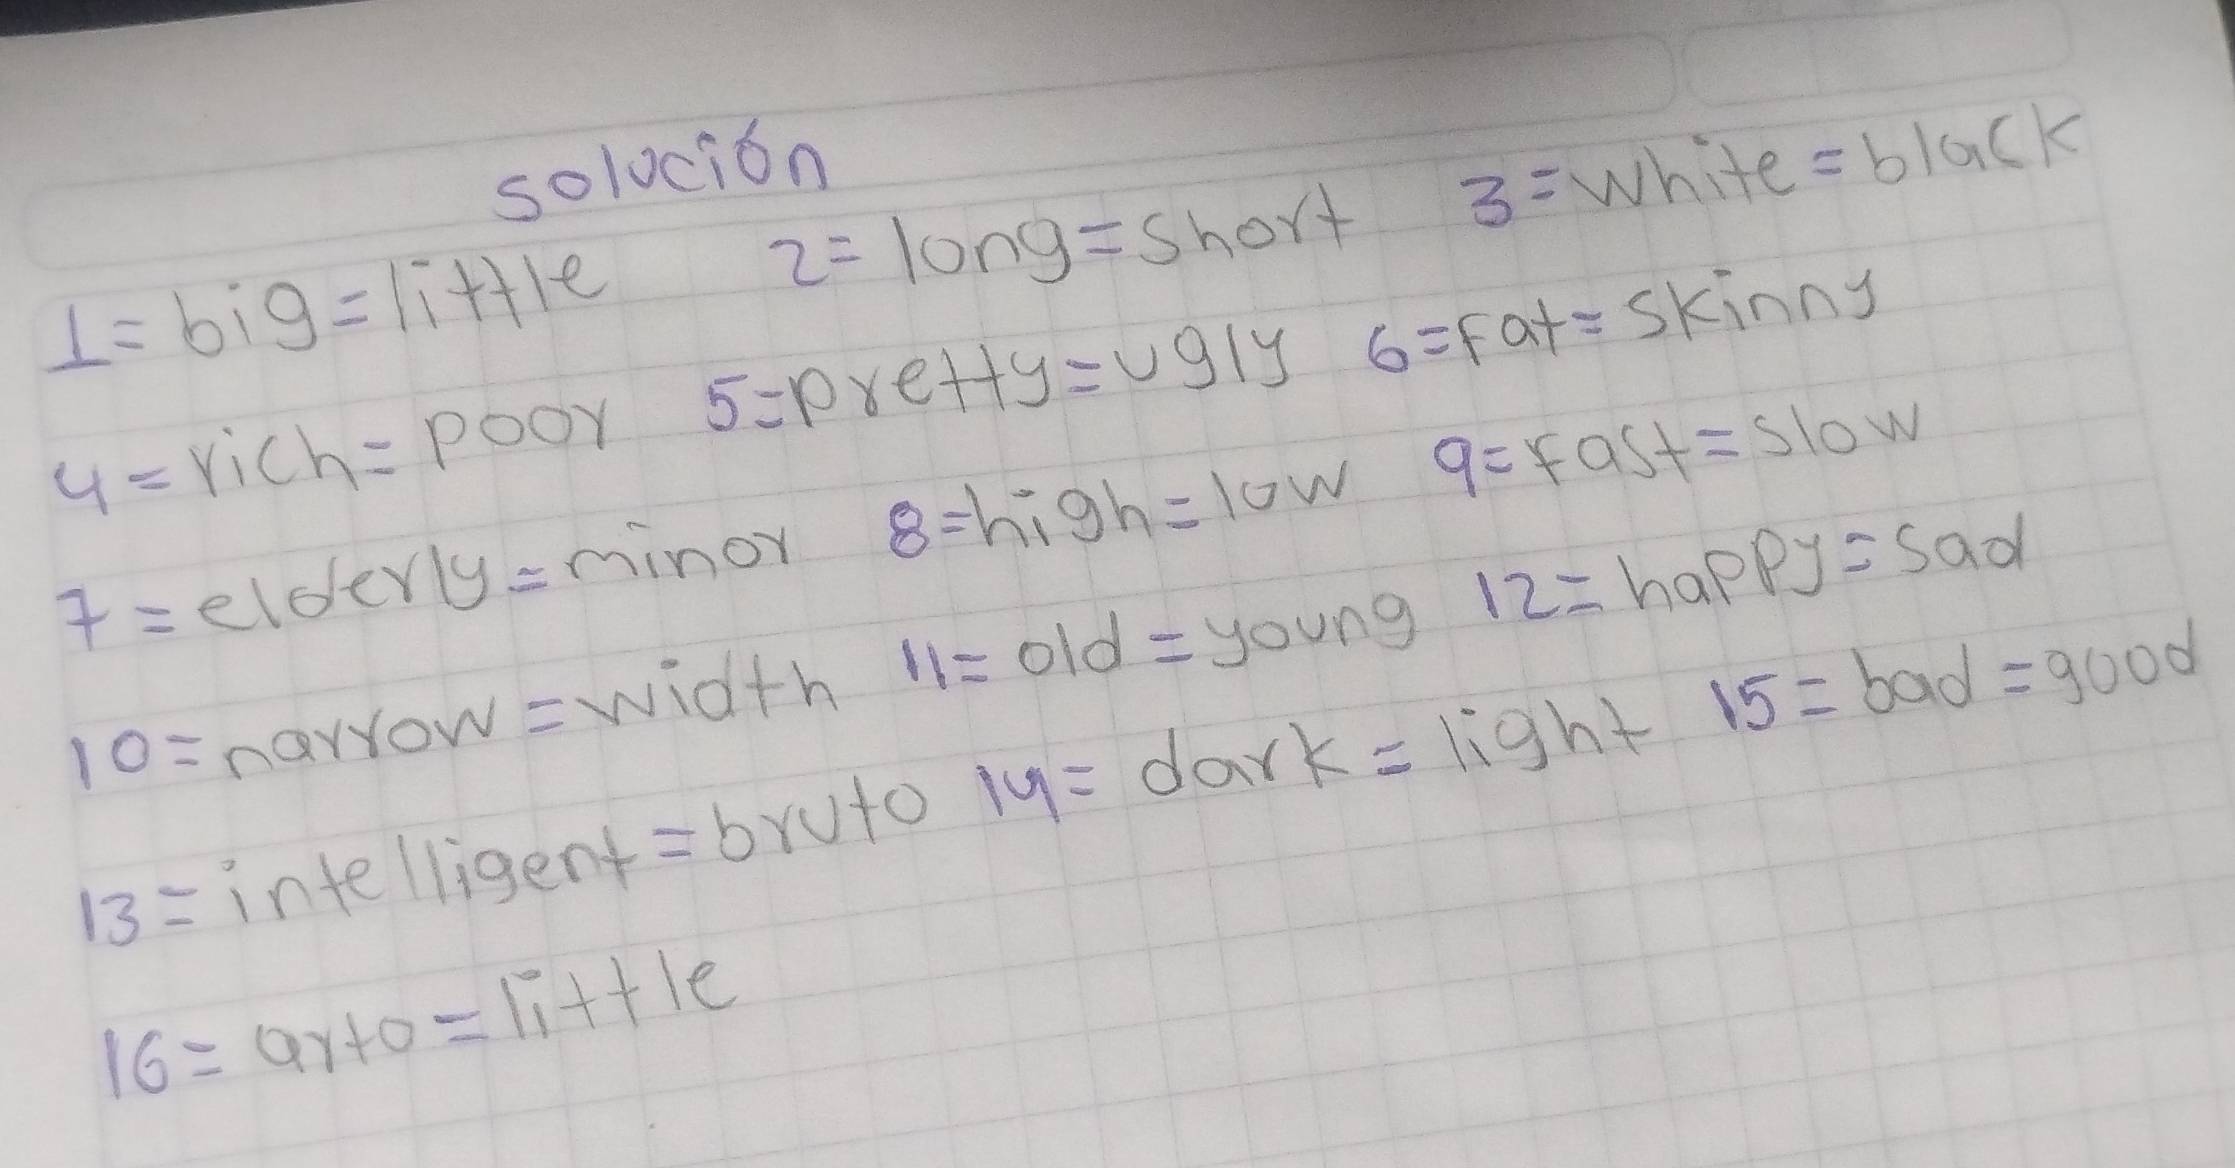 solución
1= big = little 2= long = short 3= white = black
4= rich = poor 5= pretty = ugly 6= fat = skinny
7= elderly = minor 8= high = low 9= fast = slow
10= narrow = width 11= old = young 12= happy = sad
13= intelligent = bruto 14= dark = light 15= bad = good
16= arto = little